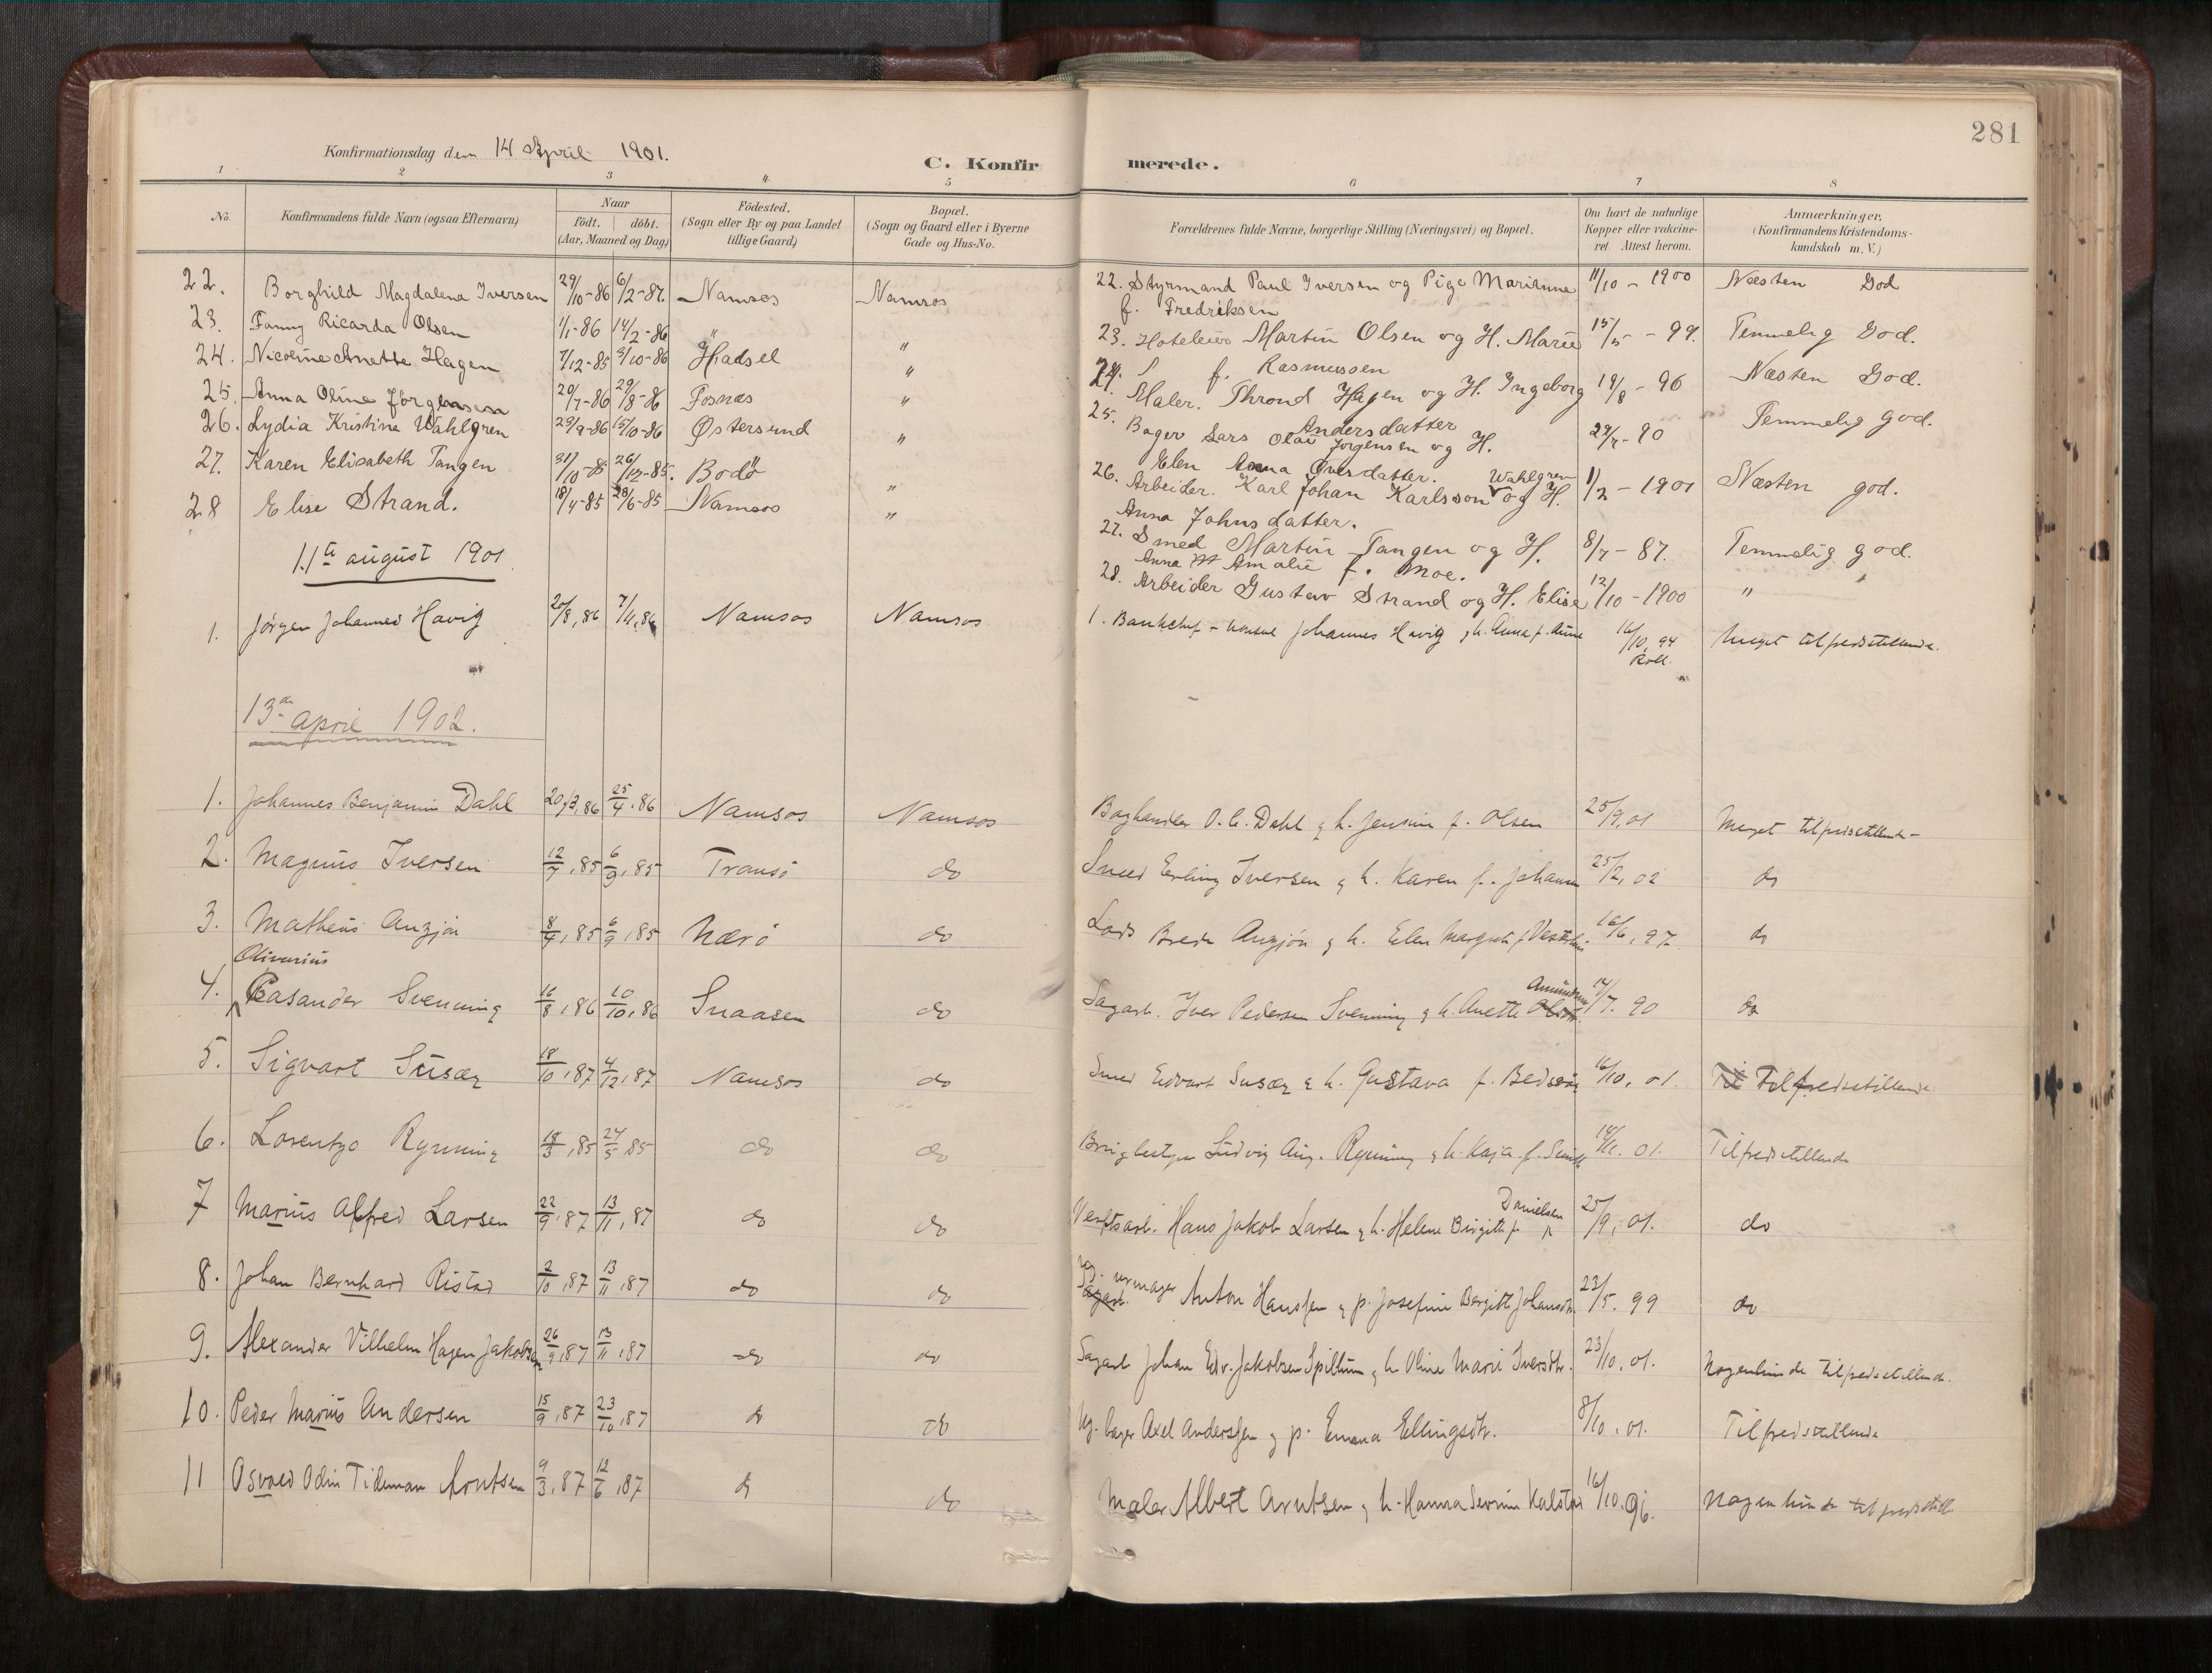 281
Konfirmationsdag den 14 April 1901.
C. Konfirmerede.
1 2 3 4 5 6 7 8
No.
Konfirmandens fulde Navn (ogsaa Efternavn)
Naar
födt. döbt.
(Aar, Maaned og Dag)
Födested.
(Sogn eller By og paa Landet
tillige Gaard)
Bopæl.
(Sogn og Gaard eller i Byerne
Gade og Hus-No.
Forældrenes fulde Navne, borgerlige Stilling (Næringsvei) og Bopæl.
Om havt de naturlige
Kopper eller vakcine-
ret Attest herom.
Anmærkninger.
(Konfirmandens Kristendoms-
kundskab m. V.)
22. Borghild Magdalena Iversen 29/10-86 6/2-87. Namsos Namsos
23. Fanny Ricarda Olsen 1/1-86 14/2-86 " "
24. Nicoline Anette Hagen 7/12-85 3/10-86 Hadsel "
25. Anna Oline Jørgensen 20/7-86 29/8-86 Fosnæs "
26. Lydia Kristina Wahlgren 29/9-86 15/10-86 Østersund "
27. Karen Elisabeth Tangen 31/10-85 26/12-85. Bodø "
28 Elise Strand. 18/4-85 28/6-85 Namsos "
11te august 1901
1. Jørgen Johannes Havig 20/8,86 7/11,86 Namsos Namsos
13de april 1902.
1. Johannes Benjamin Dahl 20/3,86 25/4,86 Namsos Namsos
2. Magnus Iversen 12/7,85 6/9,85 Tromsö do
3. Mathæus Anzjön 8/4,85 6/9,85 Nærö do
Olivarius
4. Casander Svenning 16/8,86 10/10,86 Snaasen do
5. Sigvart Susæg 18/10,87 4/12,87 Namsos do
6. Lorentzo Rynning 18/3,85 24/5,85 do do
7 Marius Alfred Larsen 22/9,87 13/11,87 do do
8. Johan Bernhard Ristad 2/10,87 13/11,87 do do
9. Alexander Vilhelm Hagen Jakobsen 26/9,87 13/11,87 do do
10. Peder Marius Andersen 15/9,87 23/10,87 do do
11 Osvald Odin Tideman Arntsen 9/3,87 12/6,87 do do
22. Styrmand Paul Iversen og Pige Marianne 11/10-1900 Næsten God
f. Fredriksen
23. Hoteleier Martin Olsen og H. Marie 15/5-99. Temmelig God.
f. Rasmussen
24. Maler. Thrond Hagen og H. Ingeborg 19/8-96 Næsten God.
Andersdatter
25. Bager Lars Olai Jørgensen og H. 29/7-90 Temmelig god.
Elen Anna Olsdatter.
Wahlgren
26. Arbeider. Karl Johan Karlsson og H. 11/2-1901 Næsten god.
Anna Johnsdatter.
27. Smed Martin Tangen og H. 8/7-87. Temmelig god.
Anna Amalie f. Moe.
28. Arbeider Gustav Strand og H. Elise 12/10-1900 " "
1. Bankchef - konsul Johannes Havig & h. Anna f. Aune 16/10,94 Meget tilfredsstillende.
Boghandler O. C. Dahl & h. Jensine f. Olsen 25/9,01 Meget tilfredsstillende
Smed Erling Iversen & h. Karen f. Johann 25/2,02 do
Lods Brede Anzjön & h. Elen Margrete f. 16/6,97. do
Amundsen
Sagarb. Iver Pedersen Svenning & h. Anette 14/7.90 do
Smed Edvart Susæg & h. Gustava f. 16/10.01. Tilfredsstillende
Ludvig Aug. Rynning & h. Kaja f. 01. Tilfredsstillende
Danielsen
Verftsarb. Hans Jakob Larsen & h. Helene Birgitte f. 25/9,01. do
urmager Anton Hanssen & p. Josefine Bergitte Johansdtr. 23/5.99 do
Sagarb Johan Edv. Jakobsen Spillum & h. Oline Marie Iversdtr. 23/10,01. Nogenlunde tilfredsstillende.
Ug. bager Axel Anderssen & p. Emma Ellingsdtr. 8/10.01. Tilfredsstillende
Maler Albert Arntsen & h. Hanna Severine Kalstad 16/10.96. nogenlunde tilfredsstill.